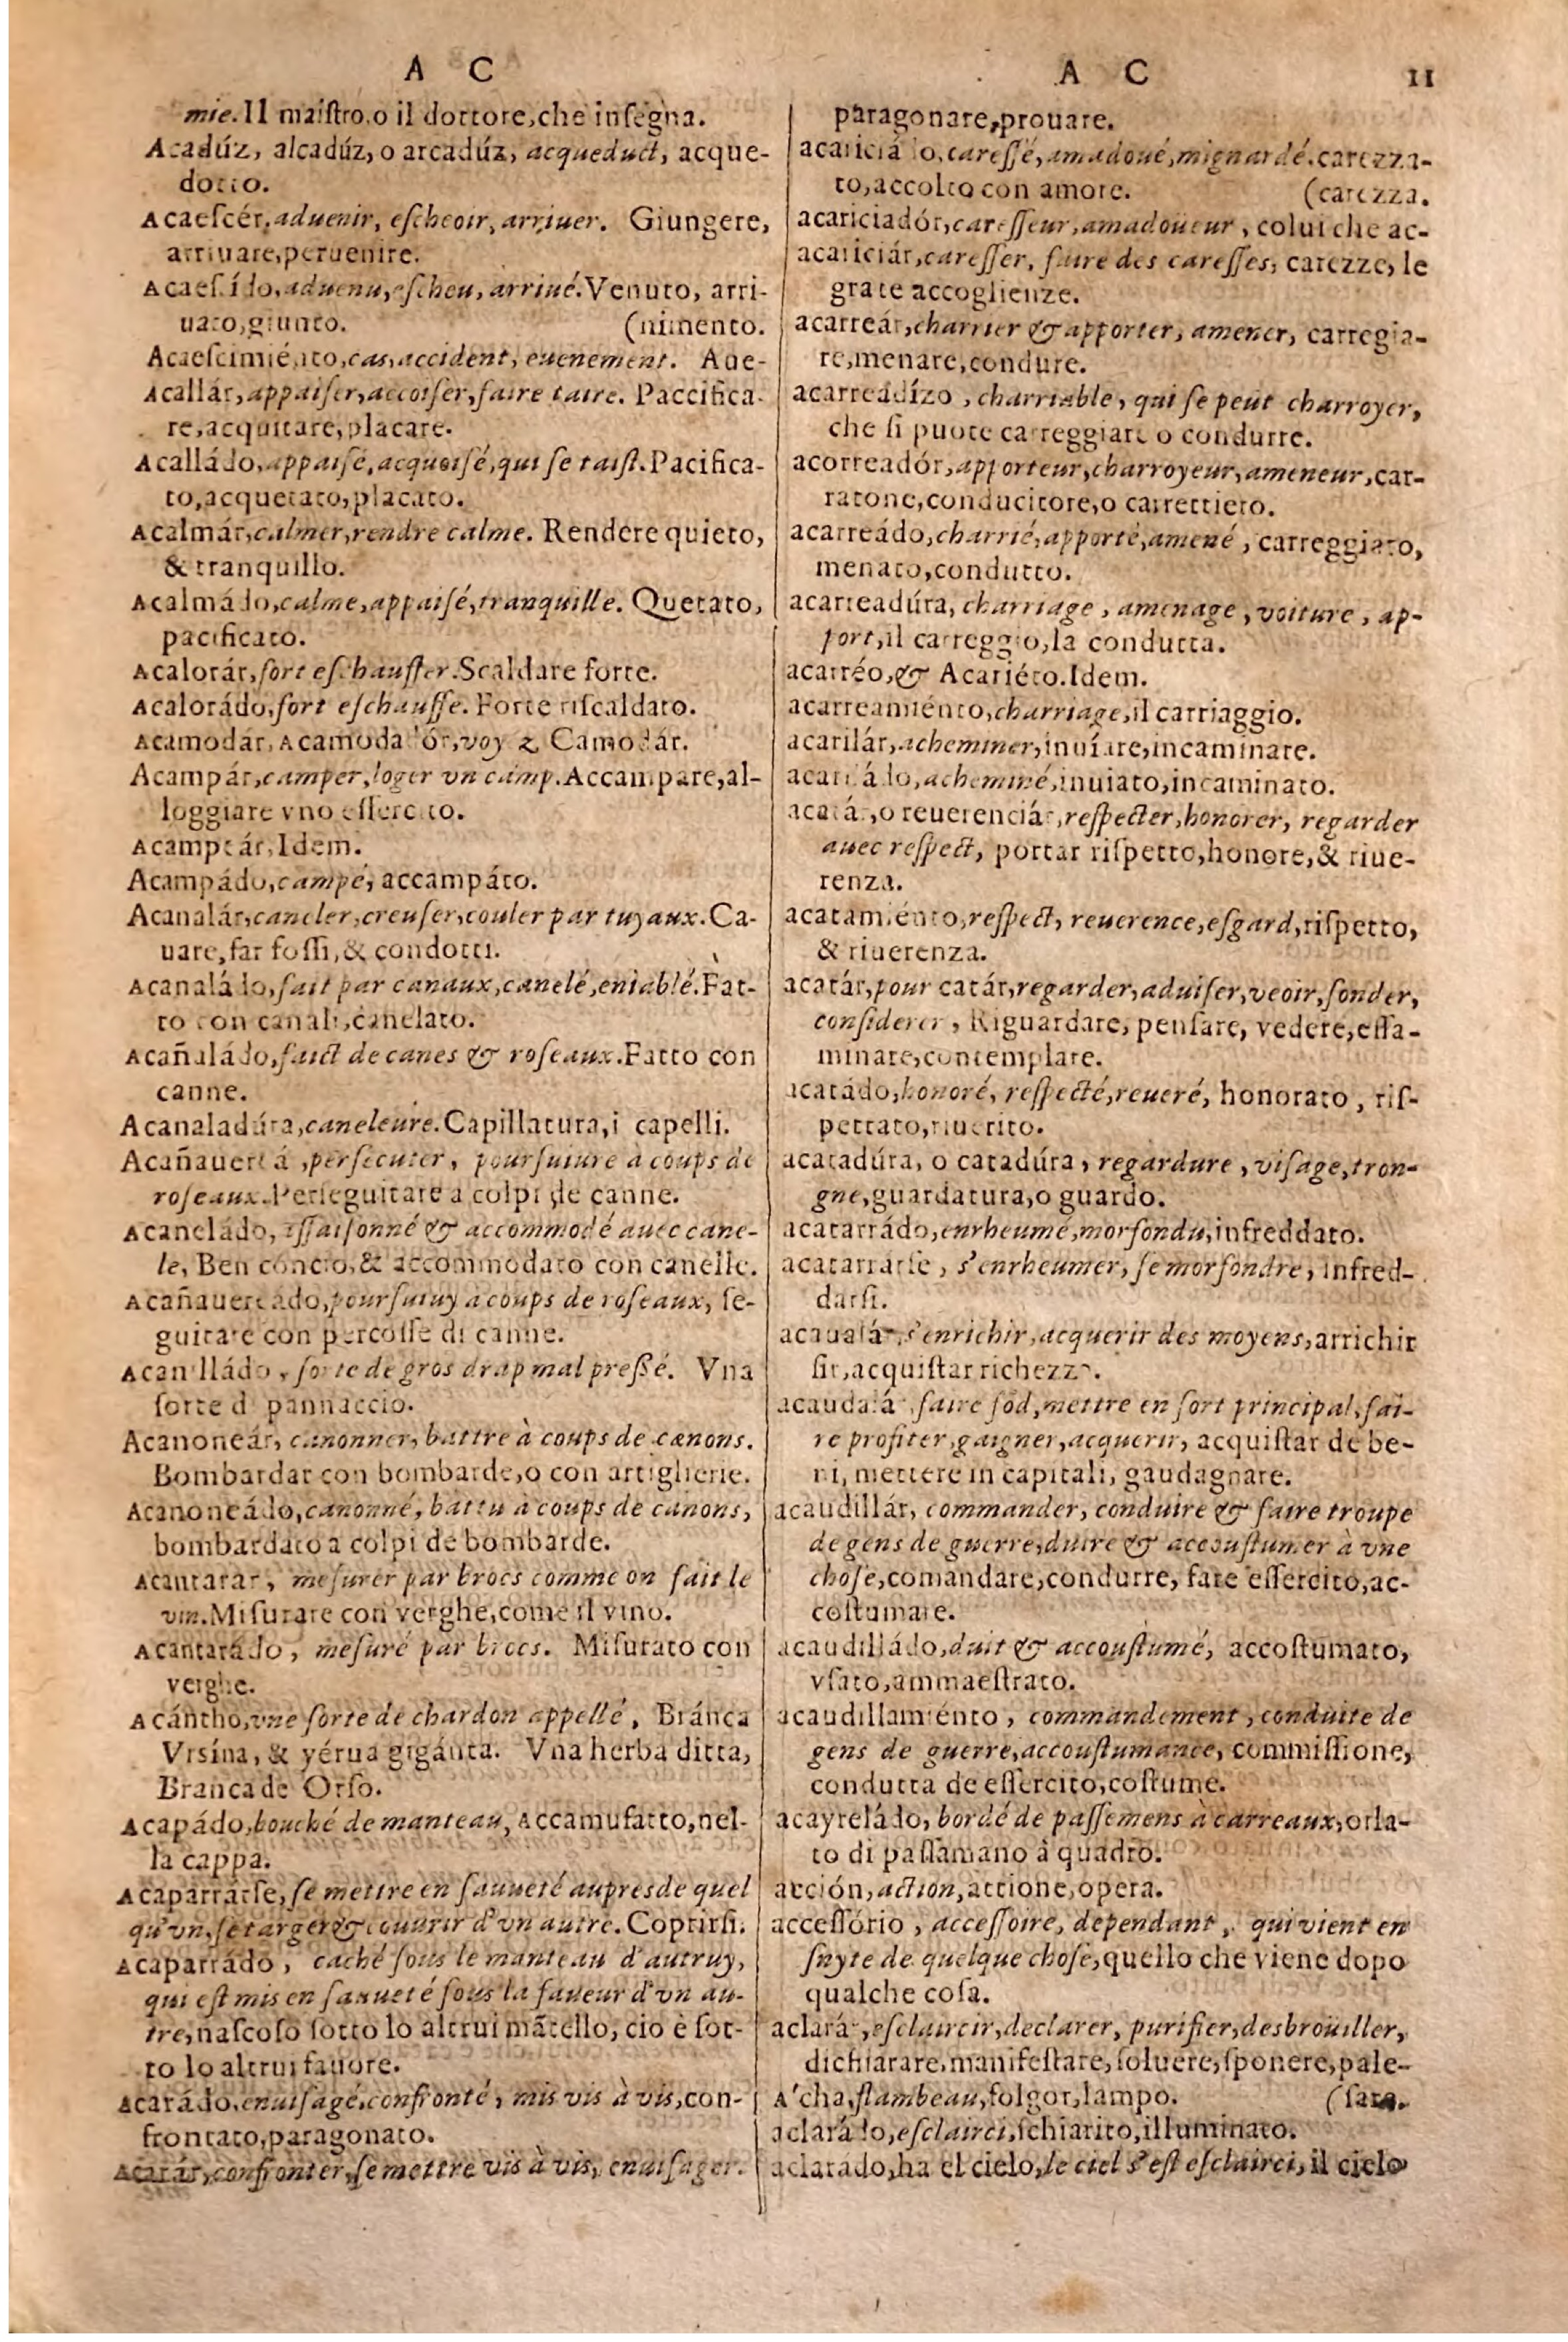 A C
mie. Il maiſtro, o il dottore, che inſegna.
Acadúz, alcadúz, o arcadúz, acqueduct, acque-
dotto.
Acaeſcér, aduenir, eſcheoir, arriuer. Giungere,
arriuare, peruenire.
Acaeſcído, aduenu, eſcheu, arriué. Venuto, arri-
uato, giunto. (nimento.
Acaeſcimiénto, cas, accident, euenement. Aue-
Acallár, appaiſer, accoiſer, faire taire. Paccifica-
re, acquitare, placare.
Acalládo, appaiſé, acquoiſé, qui ſe taiſt. Pacifica-
to, acquetato, placato.
Acalmár, calmer, rendre calme. Rendere quieto,
& tranquillo.
Acalmádo, calme, appaiſé, tranquille. Quetato,
pacificato.
Acalorár, fort eſchauffer. Scaldare forte.
Acalorádo, fort eſchauffe. Forte riſcaldato.
Acamodár, Acamodadór, voyez Camodár.
Acampár, camper, loger vn camp. Accampare, al-
loggiare vno eſſercito.
Acamptár, Idem.
Acampádo, campé, accampáto.
Acanalár, caneler, creuſer, couler par tuyaux. Ca-
uare, far foſſi, & condotti.
Acanaládo, fait par canaux, canelé, entablé. Fàt-
to con canali, canelato.
Acañaládo, faict de canes & roſeaux. Fatto con
canne.
Acanaladúra, caneleure. Capillatura, i capelli.
Acañauereá, perſecuter, pourſuiure à coups de
roſeaux. Perſeguitare a colpi de canne.
Acaneládo, aſſaiſonné & accommodé auec cane-
le, Ben concio, & accommodato con canelle.
Acañauereado, pourſuiuy à coups de roſeaux, ſe-
guitare con percoſſe di canne.
Acanilládo, ſorte de gros drap mal preſſé. Vna
ſorte di pannaccio.
Acanoneár, canonner, battre à coups de canons.
Bombardar con bombarde, o con artiglierie.
Acanoneádo, canonné, battu à coups de canons,
bombardato a colpi de bombarde.
Acantarár, meſurer par brocs comme on fait le
vin. Miſurare con verghe, come il vino.
Acantarádo, meſuré par brocs. Miſurato con
verghe.
Acántho, vne ſorte de chardon appellé, Bránca
Vrsína, & yérua gigánta. Vna herba ditta,
Branca de Orſo.
Acapádo, bouché de manteau, Accamufatto, nel-
la cappa.
Acaparrárſe, ſe mettre en ſauueté aupres de quel
qu'vn, ſe targer & couurir d'vn autre. Coprirſi.
Acaparrádo, caché ſous le manteau d'autruy,
qui eſt mis en ſauueté ſous la faueur d'vn au-
tre, naſcoſo ſotto lo altrui mãtello, cio è ſot-
to lo altrui fauore.
Acarádo, enuiſagé, confronté, mis vis à vis, con-
frontato, paragonato.
Acarár, confronter, ſe mettre vis à vis, enuiſager.
A C 11
paragonare, prouare.
acariciádo, careſſé, amadoué, mignardé. carezza-
to, accolto con amore. (carezza.
acariciadór, careſſeur, amadoueur, colui che ac-
acariciár, careſſer, faire des careſſes, carezze, le
grate accoglienze.
acarreár, charrier & apporter, amener, carregia-
re, menare, condure.
acarreadízo, charriable, qui ſe peut charroyer,
che ſi puote carreggiare o condurre.
acorreadór, apporteur, charroyeur, ameneur, car-
ratone, conducitore, o carrettiero.
acarreádo, charrié, apporté, amené, carreggiato,
menato, condutto.
acarreadúra, charriage, amenage, voiture, ap-
port, il carreggio, la condutta.
acarréo, & Acariéto. Idem.
acarreamiénto, charriage, il carriaggio.
acarilár, acheminer, inuíare, incaminare.
acariládo, acheminé, inuiato, incaminato.
acatár, o reuerenciár, reſpecter, honorer, regarder
auec reſpect, portar riſpetto, honore, & riue-
renza.
acatamiénto, reſpect, reuerence, eſgard, riſpetto,
& riuerenza.
acatár, pour catár, regarder, aduiſer, veoir, ſonder,
conſiderer, Riguardare, penſare, vedere, eſſa-
minare, contemplare.
acatádo, honoré, reſpecté, reueré, honorato, riſ-
pettato, riuerito.
acatadúra, o catadúra, regardure, viſage, tron-
gne, guardatura, o guardo.
acatarrádo, enrheumé, morfondu, infreddato.
acatarrarſe, s'enrheumer, ſe morfondre, infred-
darſi.
acaualár, s'enrichir, acquerir des moyens, arrichir
ſir, acquiſtar richezze.
acaudalár, faire fõd, mettre en ſort principal, fai-
re profiter, gaigner, acquerir, acquiſtar de be-
ni, mettere in capitali, gaudagnare.
acaudillár, commander, conduire & faire troupe
de gens de guerre, duire & accouſtumer à vne
choſe, comandare, condurre, fare eſſercito, ac-
coſtumare.
acaudilládo, duit & accouſtumé, accoſtumato,
vſato, ammaeſtrato.
acaudillamiénto, commandement, conduite de
gens de guerre, accouſtumance, commiſſione,
condutta de eſſercito, coſtume.
acayreládo, bordé de paſſemens à carreaux, orla-
to di paſſamano à quadro.
acción, action, attione, opera.
acceſſório, acceſſoire, dependant, qui vient en
ſuyte de quelque choſe, quello che viene dopo
qualche coſa.
aclarár, eſclaircir, declarer, purifier, desbroüiller,
dichiarare, manifeſtare, ſoluere, ſponere, pale-
A'cha, flambeau, folgor, lampo. (ſare.
aclarádo, eſclairci, ſchiarito, illuminato.
aclarado, ha el cielo, le ciel s'eſt eſclairci, il cielo